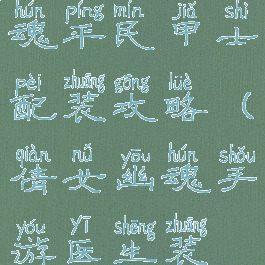 hún píng mín jiǎ shì
魂平民甲士
pèi zhuāng gōng lüè
配装攻略（
qiàn nǚ yōu hún shǒu
倩女幽魂手
yóu yī shēng zhuāng
游医生装